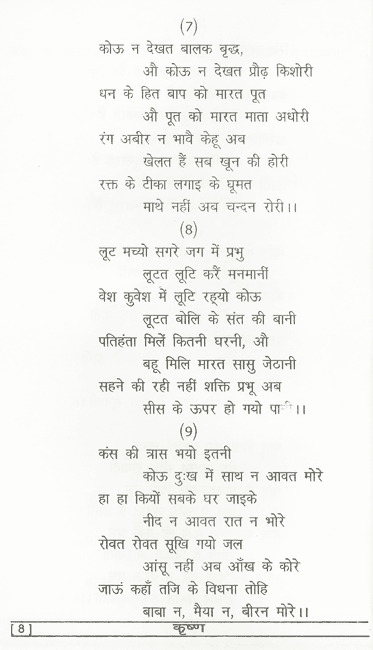 (7)
कोऊ न देखत बालक बृद्ध,
औ कोऊ न देखत प्रौढ़ किशोरी
धन के हित बाप को मारत पूत
औ पूत को मारत माता अधोरी
रंग अबीर न भावै केहू अब
खेलत हैं सब खून की होरी
रक्त के टीका लगाइ के घूमत
माथे नहीं अब चन्दन रोरी।।
(8)
लूट मच्यो सगरे जग में प्रभु
लूटत लूटि करैं मनमानीं
वेश कुवेश में लूटि रह्यो कोऊ
लूटत बोलि के संत की बानी
पतिहंता मिलें कितनी घरनी, औ
बहू मिलि मारत सासु जेठानी
सहने की रही नहीं शक्ति प्रभू अब
सीस के ऊपर हो गयो पानी।।
(9)
कंस की त्रास भयो इतनी
कोऊ दुःख में साथ न आवत मोरे
हा हा कियों सबके घर जाइके
नीद न आवत रात न भोरे
रोवत रोवत सूखि गयो जल
आंसू नहीं अब आँख के कोरे
जाऊं कहाँ तजि के विधना तोहि
बाबा न, मैया न, बीरन मोरे।।
[8] कृष्ण